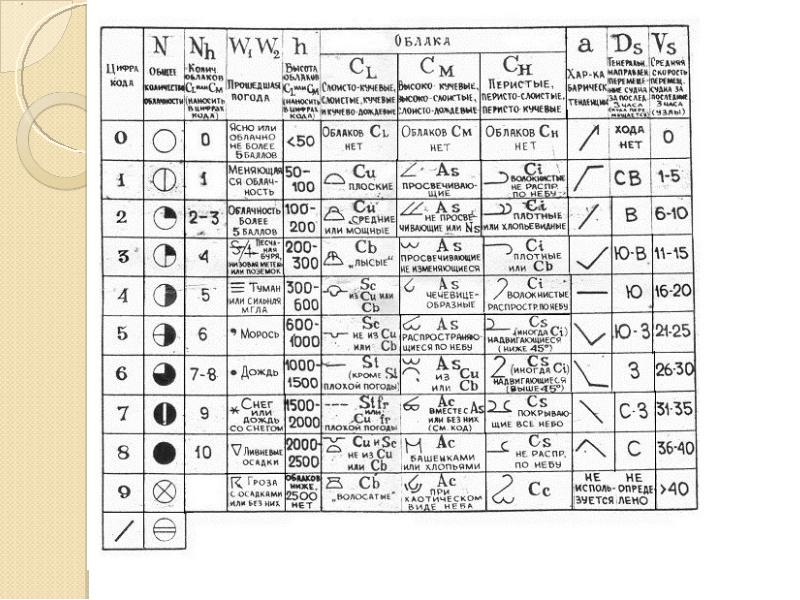 ОБЛАКА
ЦИФРА КОДА
N
ОБЩЕЕ
КОЛИЧЕСТВО
ОБЛАЧНОСТИ
Nh
КОЛИЧ.
ОБЛАКОВ
CL ИЛИ CM
(НАНОСИТЬ
В ЦИФРАХ
КОДА)
W1 W2
ПРОШЕДШАЯ
ПОГОДА
h
ВЫСОТА
ОБЛАКОВ
CL ИЛИ CM
(НАНОСИТЬ
В ЦИФРАХ
КОДА)
CL
СЛОИСТО-КУЧЕВЫЕ,
СЛОИСТЫЕ, КУЧЕВЫЕ
И КУЧЕВО-ДОЖДЕВЫЕ
CM
ВЫСОКО-КУЧЕВЫЕ,
ВЫСОКО-СЛОИСТЫЕ,
СЛОИСТО-ДОЖДЕВЫЕ
CH
ПЕРИСТЫЕ,
ПЕРИСТО-СЛОИСТЫЕ,
ПЕРИСТО-КУЧЕВЫЕ
a
ХАР-КА
БАРИЧЕСК.
ТЕНДЕНЦИИ
Ds
ГЕНЕРАЛЬН.
НАПРАВЛЕН.
ПЕРЕМЕЩЕ-
НИЕ СУДНА
ЗА ПОСЛЕД.
3 ЧАСА
Vs
СРЕДНЯЯ
СКОРОСТЬ
ПЕРЕМЕЩ.
СУДНА ЗА
ПОСЛЕДНИЕ
3 ЧАСА
(УЗЛЫ)
0
0
ЯСНО ИЛИ
ОБЛАЧНО
НЕ БОЛЕЕ
5 БАЛЛОВ
<50
ОБЛАКОВ CL
НЕТ
ОБЛАКОВ CM
НЕТ
ОБЛАКОВ CH
НЕТ
ХОДА
НЕТ
0
1
1
МЕНЯЮЩАЯ
СЯ ОБЛАЧ-
НОСТЬ
50-
100
Cu
ПЛОСКИЕ
As
ПРОСВЕЧИВАЮ-
ЩИЕ
Ci
ВОЛОКНИСТЫЕ
НЕ РАСПР.
ПО НЕБУ
СВ
1-5
2
2-3
ОБЛАЧНОСТЬ
БОЛЕЕ
5 БАЛЛОВ
100-
200
Cu
СРЕДНИЕ
ИЛИ МОЩНЫЕ
As
НЕ ПРОСВЕ-
ЧИВАЮЩИЕ ИЛИ Ns
Ci
ПЛОТНЫЕ
ИЛИ ХЛОПЬЕВИДНЫЕ
В
6-10
3
4
ПЕСЧА-
НАЯ
БУРЯ,
НИЗОВАЯ МЕТЕЛЬ
ИЛИ ПОЗЕМОК
200-
300
Cb
„ЛЫСЫЕ"
As
ПРОСВЕЧИВАЮЩИЕ
НЕ ИЗМЕНЯЮЩИЕСЯ
Ci
ПЛОТНЫЕ
ИЛИ Cb
Ю-В
11-15
4
5
ТУМАН
ИЛИ СИЛЬНАЯ
МГЛА
300-
600
Sc
ИЗ Cu ИЛИ
Cb
As
ЧЕЧЕВИЦЕ-
ОБРАЗНЫЕ
Ci
ВОЛОКНИСТЫЕ
РАСПРОСТР. ПО НЕБУ
Ю
16-20
5
6
МОРОСЬ
600-
1000
Sc
НЕ ИЗ Cu
ИЛИ Cb
As
РАСПРОСТРАНЯЮ-
ЩИЕСЯ ПО НЕБУ
Cs
(ИНОГДА Ci)
НАДВИГАЮЩИЕСЯ
(НИЖЕ 45°)
Ю-З
21-25
6
7-8
ДОЖДЬ
1000-
1500
St
(КРОМЕ St
ПЛОХОЙ ПОГОДЫ)
As
ИЗ Cu
ИЛИ Cb
Cs
(ИНОГДА Ci)
НАДВИГАЮЩИЕСЯ
(ВЫШЕ 45°)
З
26-30
7
9
СНЕГ
ИЛИ
ДОЖДЬ
СО СНЕГОМ
1500-
2000
St fr
ИЛИ
Cu fr
ПЛОХОЙ ПОГОДЫ
Ac
ВМЕСТЕ С As
ИЛИ БЕЗ НИХ
(СМ. КОД)
Cs
ПОКРЫВАЮ-
ЩИЕ ВСЕ НЕБО
С-З
31-35
8
10
ЛИВНЕВЫЕ
ОСАДКИ
2000-
2500
Cu И Sc
НЕ ИЗ Cu
ИЛИ Cb
Ac
БАШЕНКАМИ
ИЛИ ХЛОПЬЯМИ
Cs
НЕ РАСПР.
ПО НЕБУ
С
36-40
9
ГРОЗА
С ОСАДКАМИ
ИЛИ БЕЗ НИХ
ОБЛАКОВ
НИЖЕ
2500
НЕТ
Cb
„ВОЛОСАТЫЕ"
Ac
ПРИ
ХАОТИЧЕСКОМ
ВИДЕ НЕБА
Cc
НЕ
ИСПОЛЬ-
ЗУЕТСЯ
НЕ
ОПРЕДЕ-
ЛЕНО
>40
/